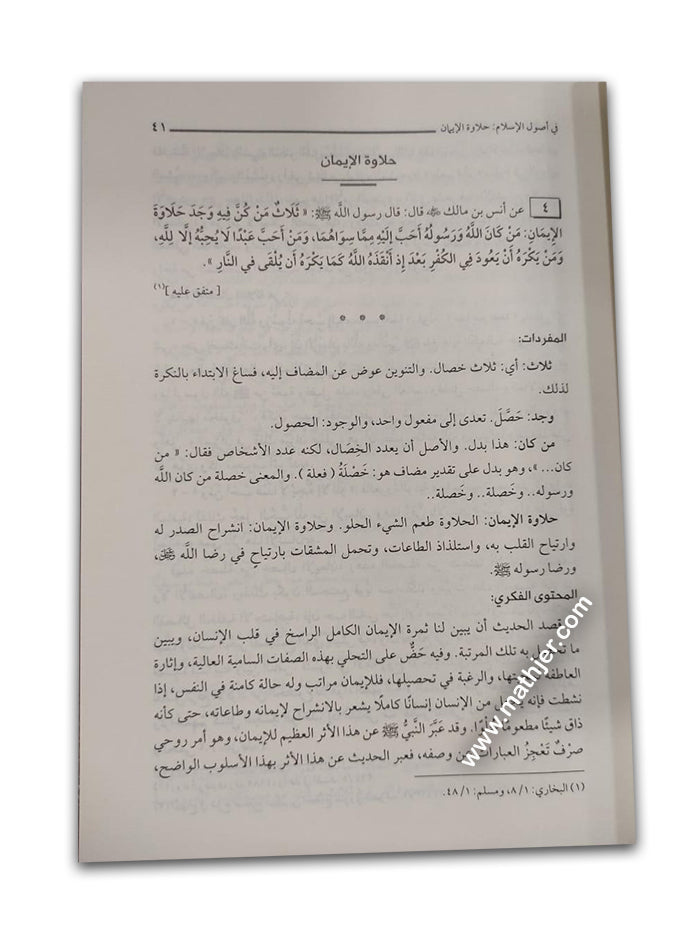 في أصول الإسلام: حلاوة الإيمان ٤١
حلاوة الإيمان
٤ عن أنس بن مالك ﵁ قال: قال رسول اللَّه ﷺ: « ثَلَاثٌ مَنْ كُنَّ فِيهِ وَجَدَ حَلَاوَةَ
الإِيمَانِ: مَنْ كَانَ اللَّهُ وَرَسُولُهُ أَحَبَّ إِلَيْهِ مِمَّا سِوَاهُمَا، وَمَنْ أَحَبَّ عَبْدًا لَا يُحِبُّهُ إِلَّا لِلَّهِ،
وَمَنْ يَكْرَهُ أَنْ يَعُودَ فِي الكُفْرِ بَعْدَ إِذ أَنْقَذَهُ اللَّهُ كَمَا يَكْرَهُ أَن يُلْقَى فِي النَّارِ ».
[ متفق عليه ](١)
* * *
المفردات:
ثلاث: أي: ثلاث خصال. والتنوين عوض عن المضاف إليه، فساغ الابتداء بالنكرة
لذلك.
وجد: حَصَّلَ. تعدى إلى مفعول واحد، والوجود: الحصول.
من كان: هذا بدل. والأصل أن يعدد الخِصَال، لكنه عدد الأشخاص فقال: « من
كان... »، وهو بدل على تقدير مضاف هو: خَصْلَةُ ( فعلة ). والمعنى خصلة من كان اللَّه
ورسوله.. وخَصلة.. وخَصلة..
حلاوة الإيمان: الحلاوة طعم الشيء الحلو. وحلاوة الإيمان: انشراح الصدر له
وارتياح القلب به، واستلذاذ الطاعات، وتحمل المشقات بارتياح في رضا اللَّه ﷻ،
ورضا رسوله ﷺ.
المحتوى الفكري:
قصد الحديث أن يبين لنا ثمرة الإيمان الكامل الراسخ في قلب الإنسان، ويبين
ما به تلك المرتبة. وفيه حَضٌّ على التحلي بهذه الصفات السامية العالية، وإثارة
العاطفة والرغبة في تحصيلها، فللإيمان مراتب وله حالة كامنة في النفس، إذا
نشطت فإنه من الإنسان إنسانًا كاملًا يشعر بالانشراح لإيمانه وطاعاته، حتى كأنه
ذاق شيئًا مطعومًا وقد عَبَّرَ النَّبيُّ ﷺ عن هذا الأثر العظيم للإيمان، وهو أمر روحي
صرْفٌ تَعْجِزُ العبارات عن وصفه، فعبر الحديث عن هذا الأثر بهذا الأسلوب الواضح،
(١) البخاري: ٨/١، ومسلم: ٤٨/١.
www.mathjer.com